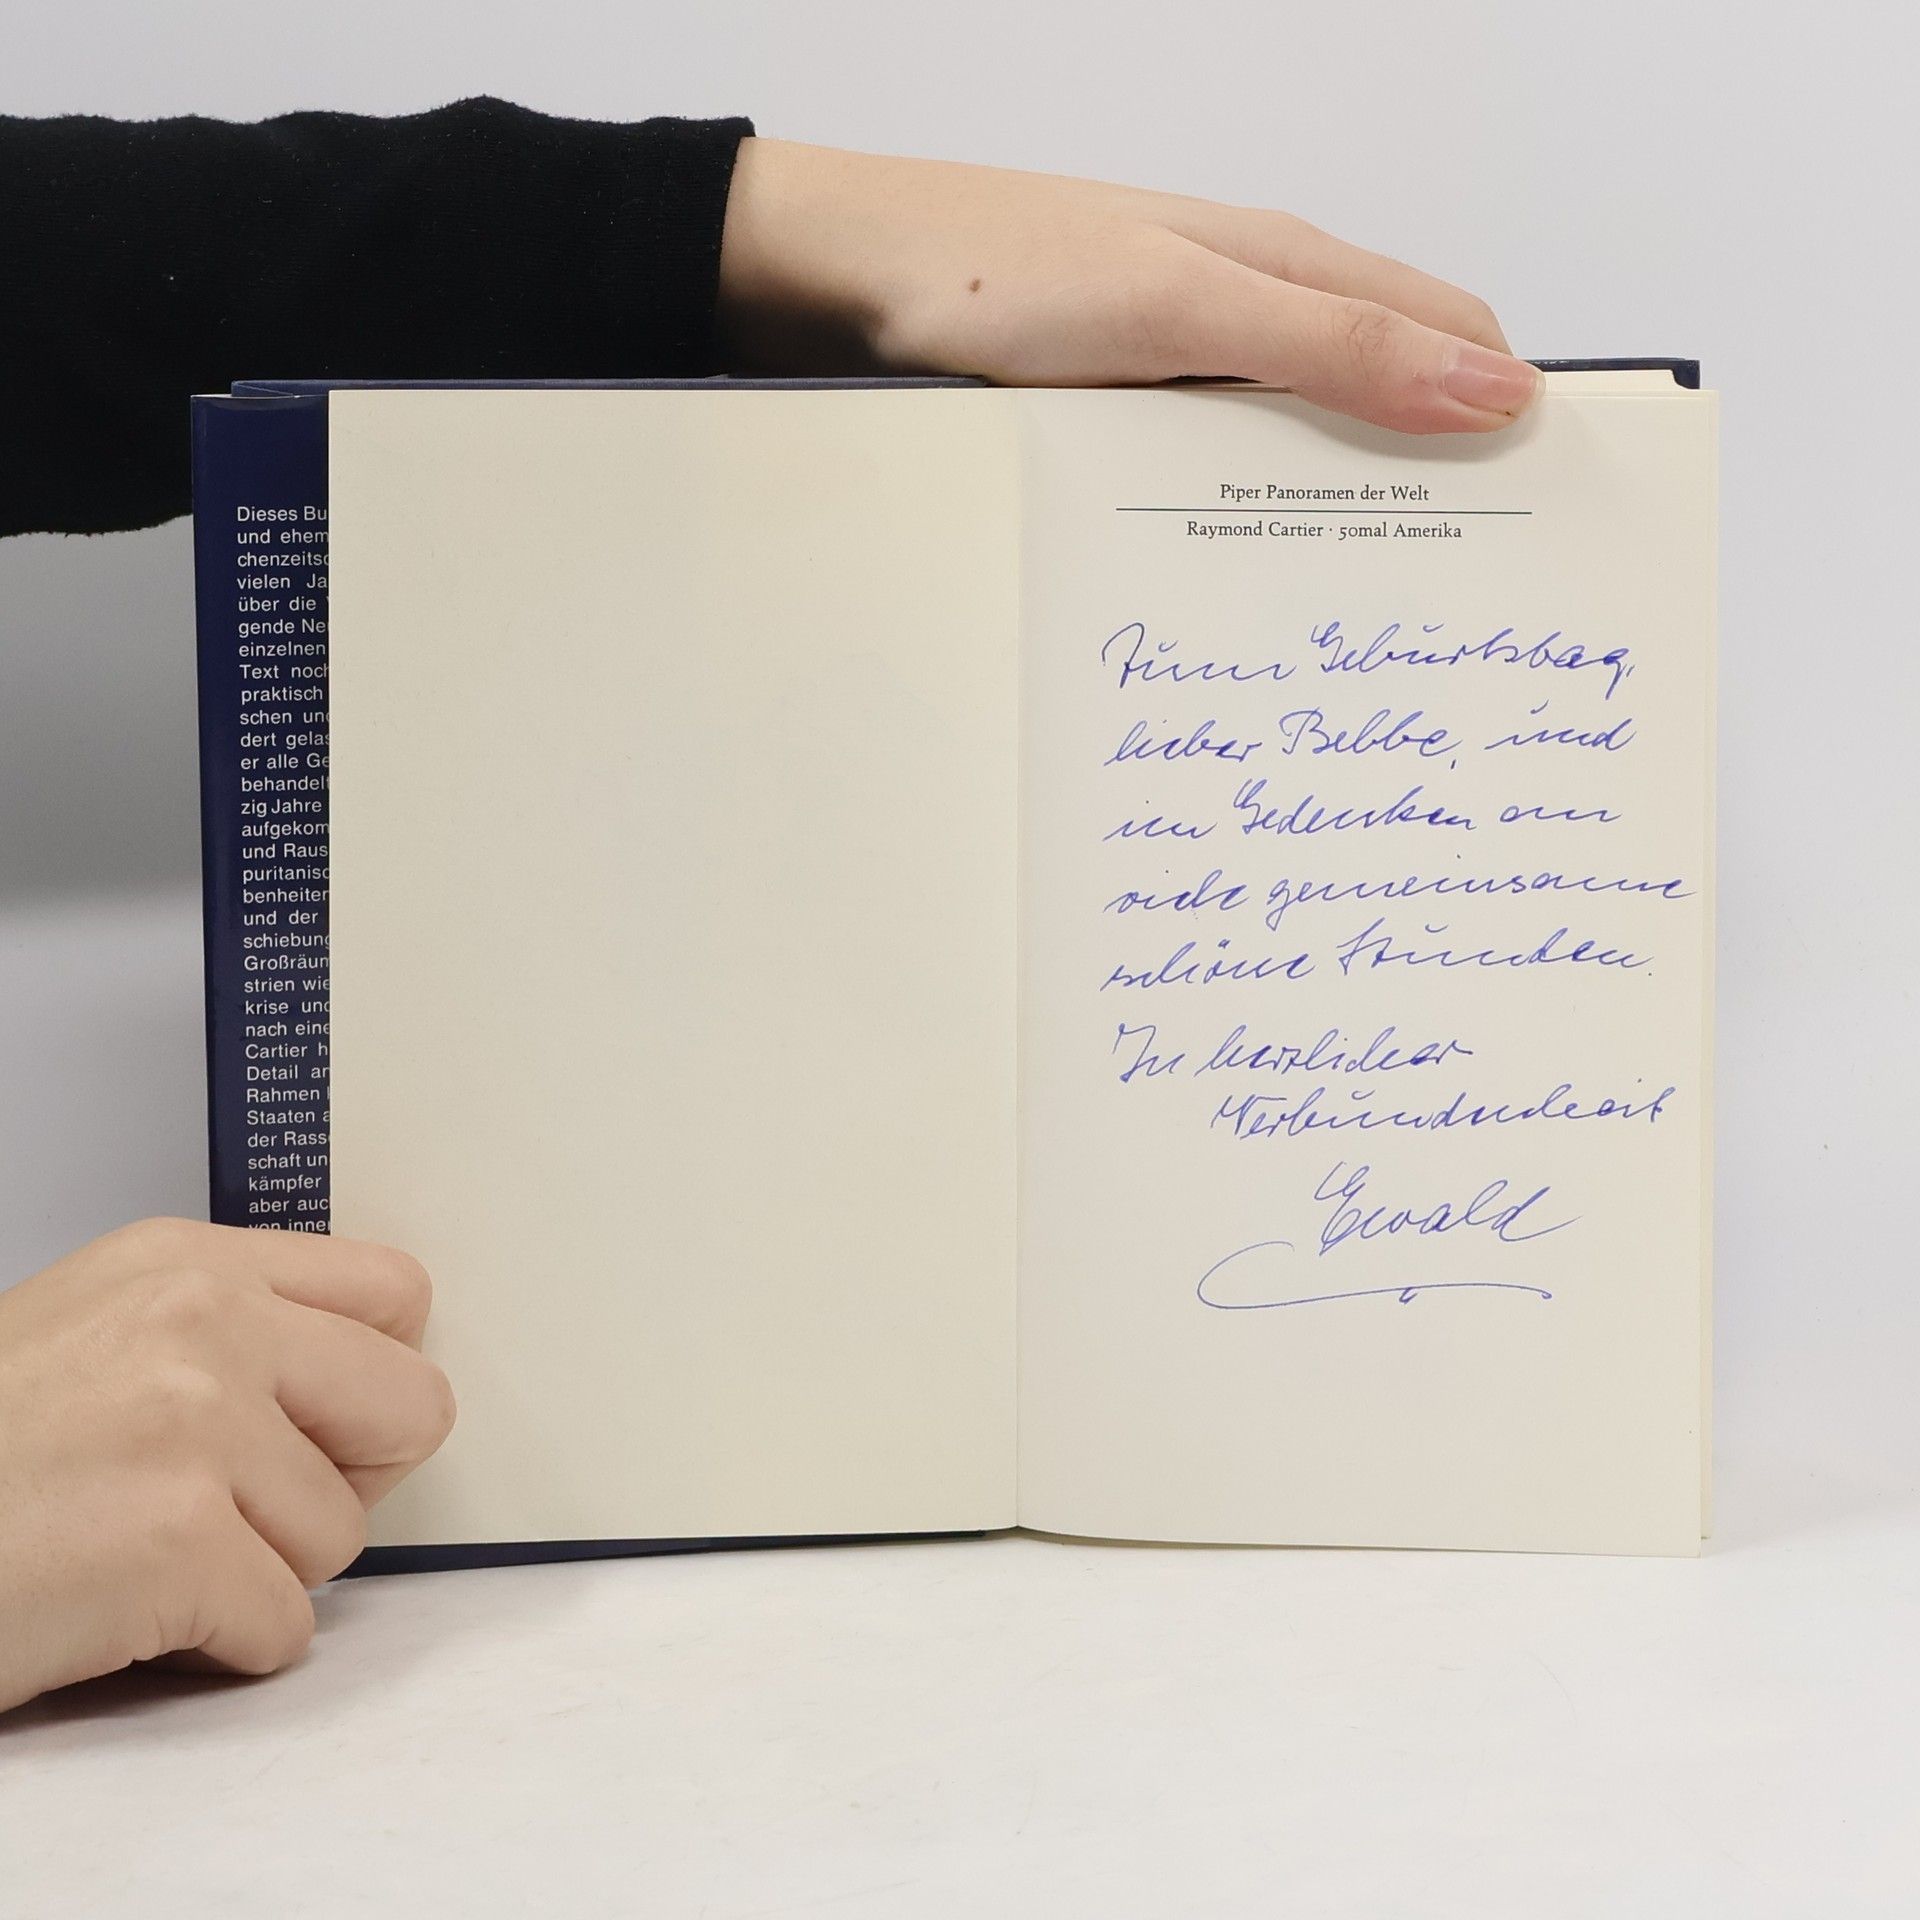 Dieses Bu
und ehem
chenzeitsc
vielen Ja
über die
gende Neu
einzelnen
Text noch
praktisch
schen und
dert gelas
er alle Ge
behandelt
zig Jahre
aufgekom
und Raus
puritanisc
benheiten
und der
schiebung
Großräum
strien wie
krise und
nach eine
Cartier h
Detail an
Rahmen
Staaten a
der Rass
schaft un
kämpfer
aber auch
von inner
Piper Panoramen der Welt
Raymond Cartier · 50mal Amerika
Zum Geburtstag,
lieber Bebbe, und
im Gedenken an
viele gemeinsame
schöne Stunden.
In herzlicher
Verbundenheit
Ewald